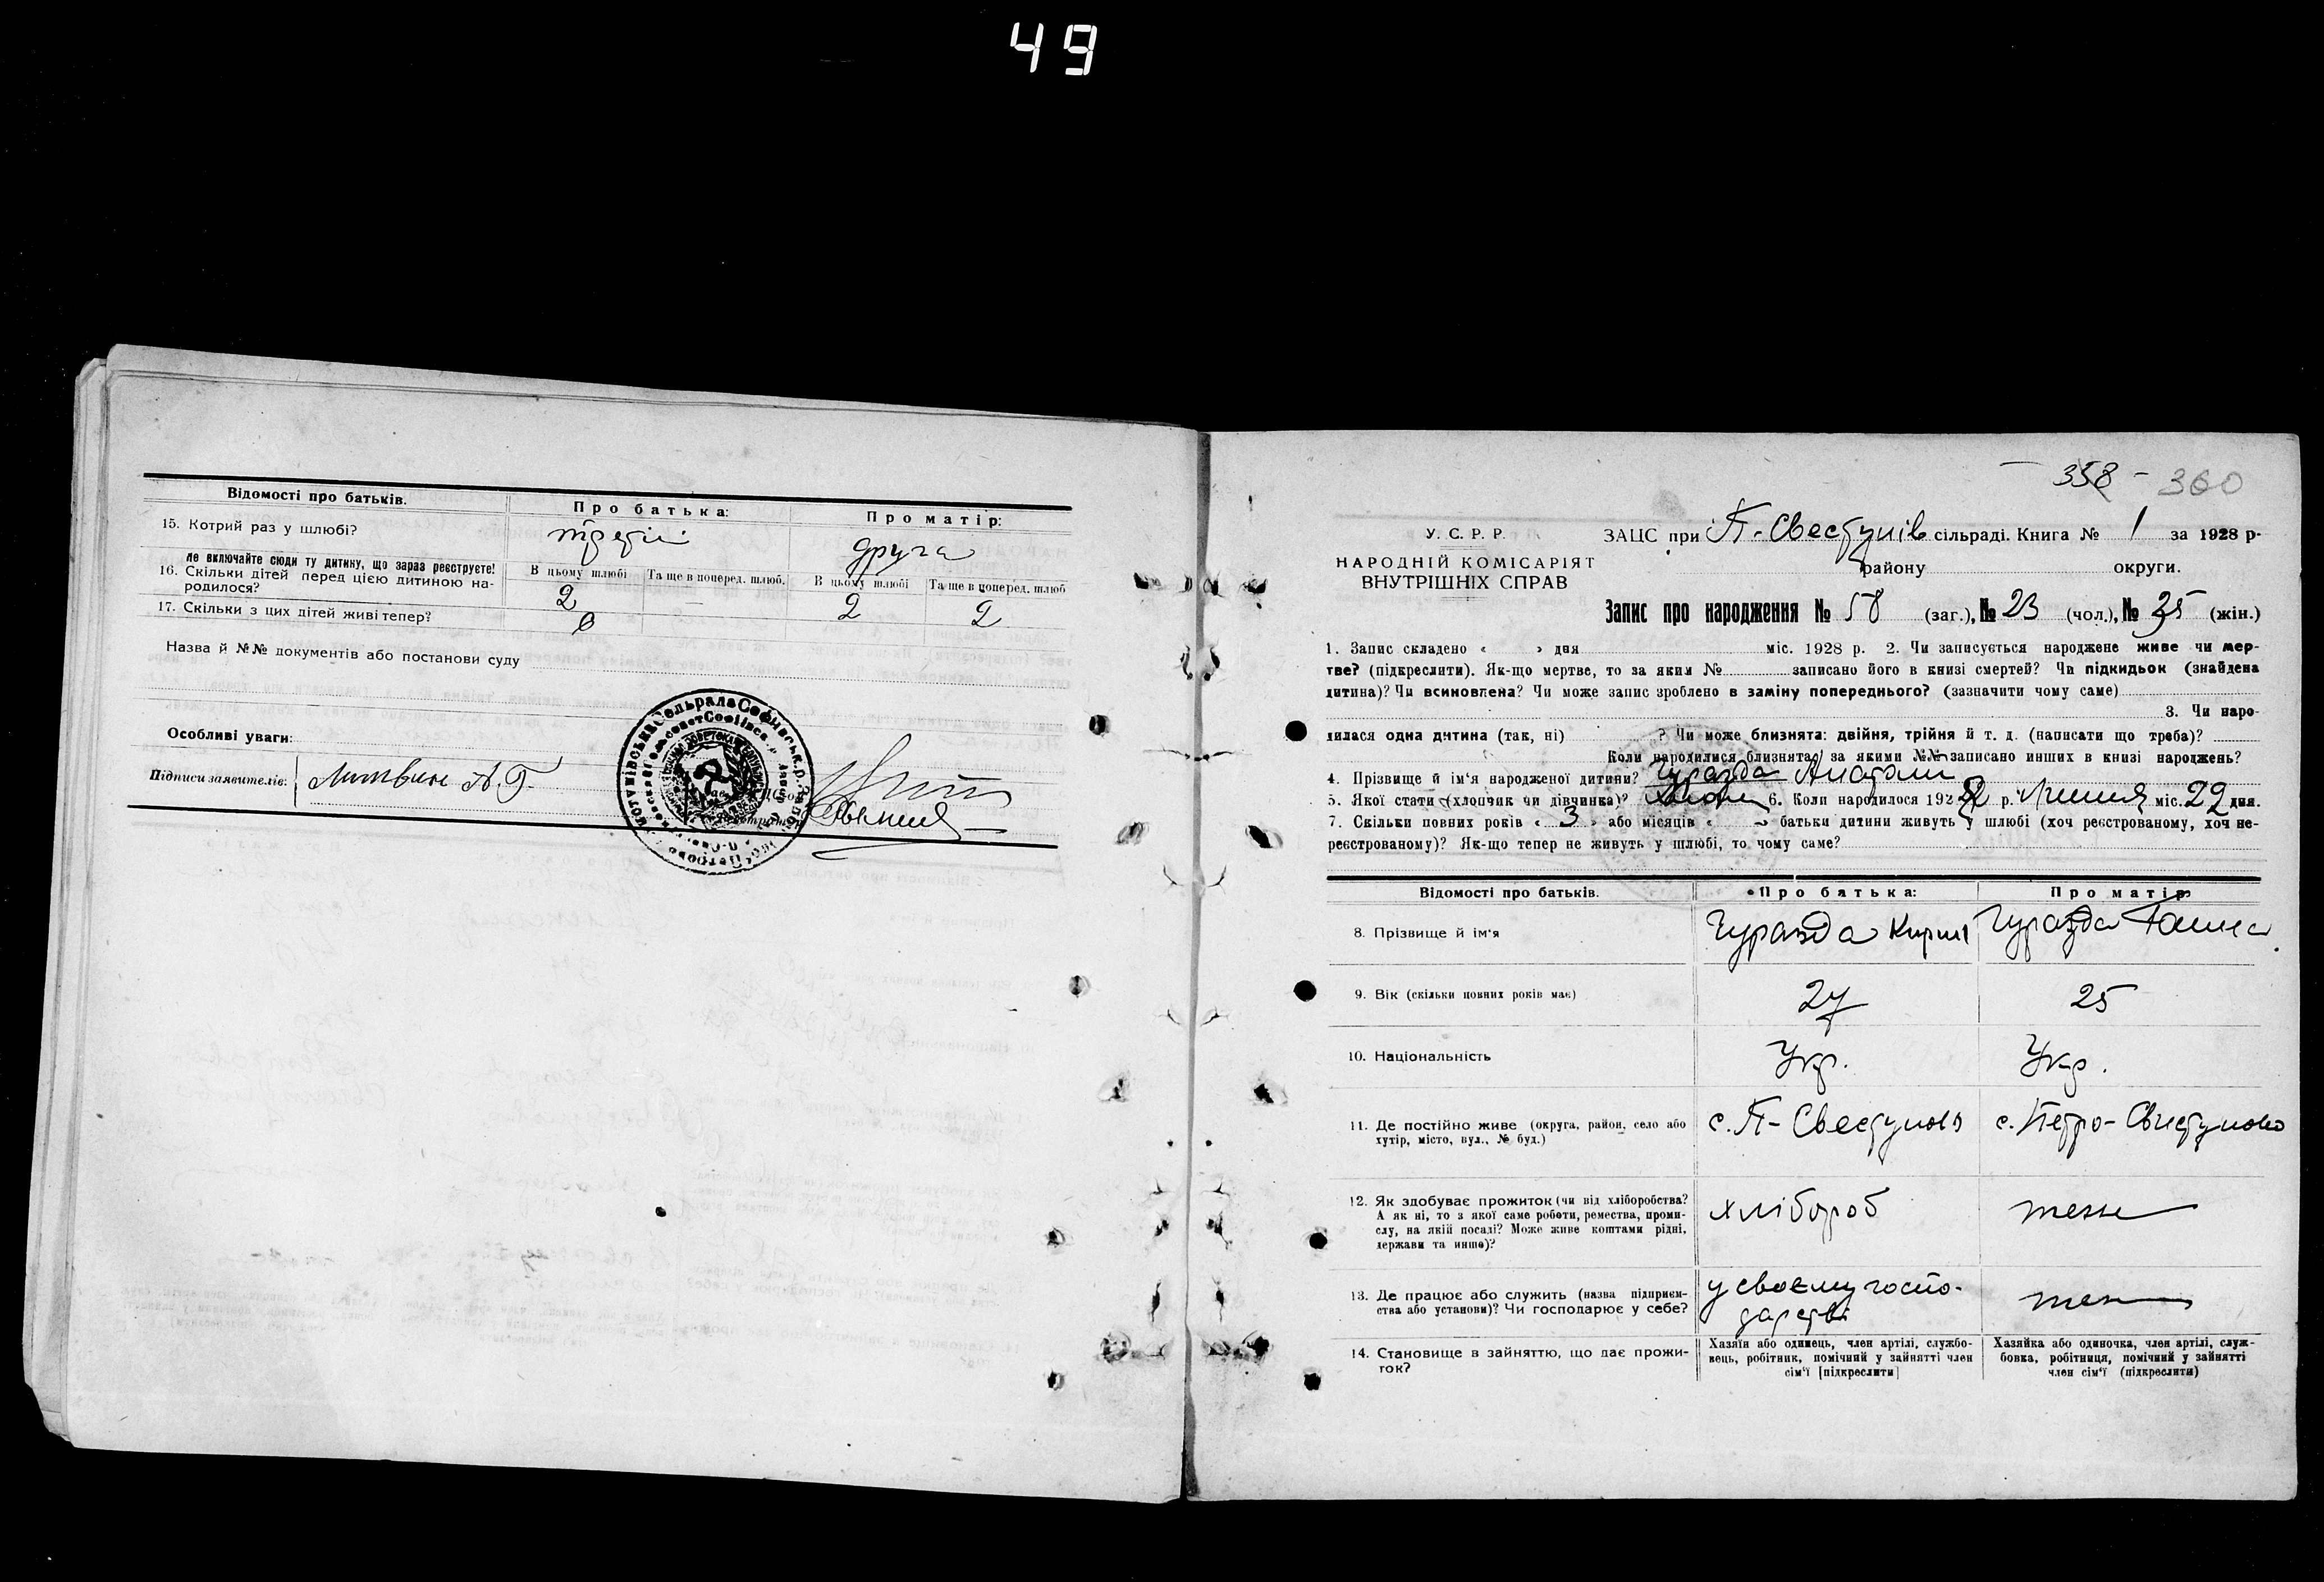 49
Відомості про батьків.
Про батька:
Про матір:
15. Котрий раз у шлюбі?
третій
друга
не включайте сюди ту дитину, що зараз реєструєте!
16. Скільки дітей перед цією дитиною на-
родилося?
В цьому шлюбі
Та ще в поперед. шлюб.
В цьому шлюбі
Та ще в поперед. шлюб
2
—
2
2
17. Скільки з цих дітей живі тепер?
0
Назва й №№ документів або постанови суду
Особливі уваги:
Підписи заявителів:
Литвин А. Г.
358 - 360
У. С. Р. Р.
НАРОДНІЙ КОМІСАРІЯТ
ВНУТРІШНІХ СПРАВ
ЗАЦС при П-Свестунів сільраді. Книга № 1 за 1928 р-
району округи.
Запис про народження № 58 (заг.), № 23 (чол.), № 35 (жін.)
1. Запис складено « » дня міс. 1928 р. 2. Чи записується народжене живе чи мер-
тве? (підкреслити). Як-що мертве, то за яким № записано його в книзі смертей? Чи підкидьок (знайдена
дитина)? Чи всиновлена? Чи може запис зроблено в заміну попереднього? (зазначити чому саме)
3. Чи наро-
дилася одна дитина (так, ні) ? Чи може близнята: двійня, трійня й т. д. (написати що треба)?
Коли народилися близнята, за якими №№ записано инших в книзі народжень?
4. Прізвище й ім'я народженої дитини? Гуразда Анатолій
5. Якої стати (хлопчик чи дівчинка)? 6. Коли народилося 192 р. Липня міс. 22 дня.
7. Скільки повних років « 3 » або місяців « — » батьки дитини живуть у шлюбі (хоч реєстрованому, хоч не-
реєстрованому)? Як-що тепер не живуть у шлюбі, то чому саме?
Відомості про батьків.
Про батька:
Про матір:
8. Прізвище й ім'я
Гуразда Кирил
Гуразда Ганна
9. Вік (скільки повних років має)
27
25
10. Національність
Укр.
Укр.
11. Де постійно живе (округа, район, село або
хутір, місто, вул., № буд.)
с. П-Свестунова
с. Петро-Свистуново
12. Як здобуває прожиток (чи від хліборобства?
А як ні, то з якої саме роботи, ремества, проми-
слу, на якій посаді? Може живе коштами рідні,
держави та инше)?
хлібороб
теж
13. Де працює або служить (назва підприєм-
ства або установи)? Чи господарює у себе?
у своєму госпо-
дарстві
теж
14. Становище в зайняттю, що дає прожи-
ток?
Хазяїн або одинець, член артілі, службо-
вець, робітник, помічний у зайнятті член
сім'ї [підкреслити]
Хазяйка або одиночка, член артілі, служ-
бовка, робітниця, помічний у зайнятті
член сім'ї (підкреслити)